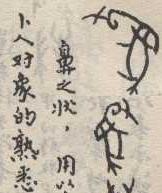 鼻之状，用
卜人对象的熟悉